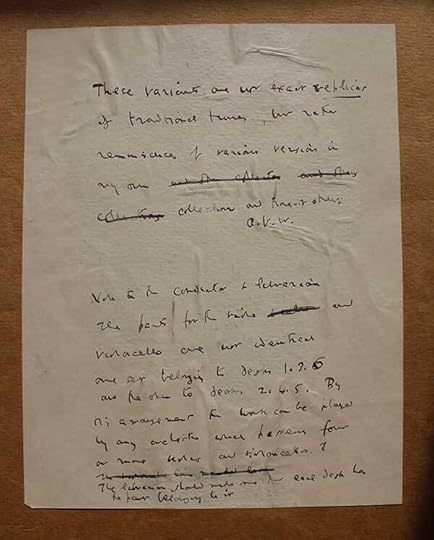 These variants are not exact replicas
of traditional tunes, but rather
reminiscences of various versions in
my own
collection and those of others
R.V.W.
Note to the conductor & librarian
The parts for the violas and
violoncellos are not identical
one set belongs to desks 1. 3.
and the other to desks 2. 4. 5. By
this arrangement the work can be played
by any orchestra which possesses four
or more violas and violoncellos.
The librarian should make sure that each desk has
the part belonging to it